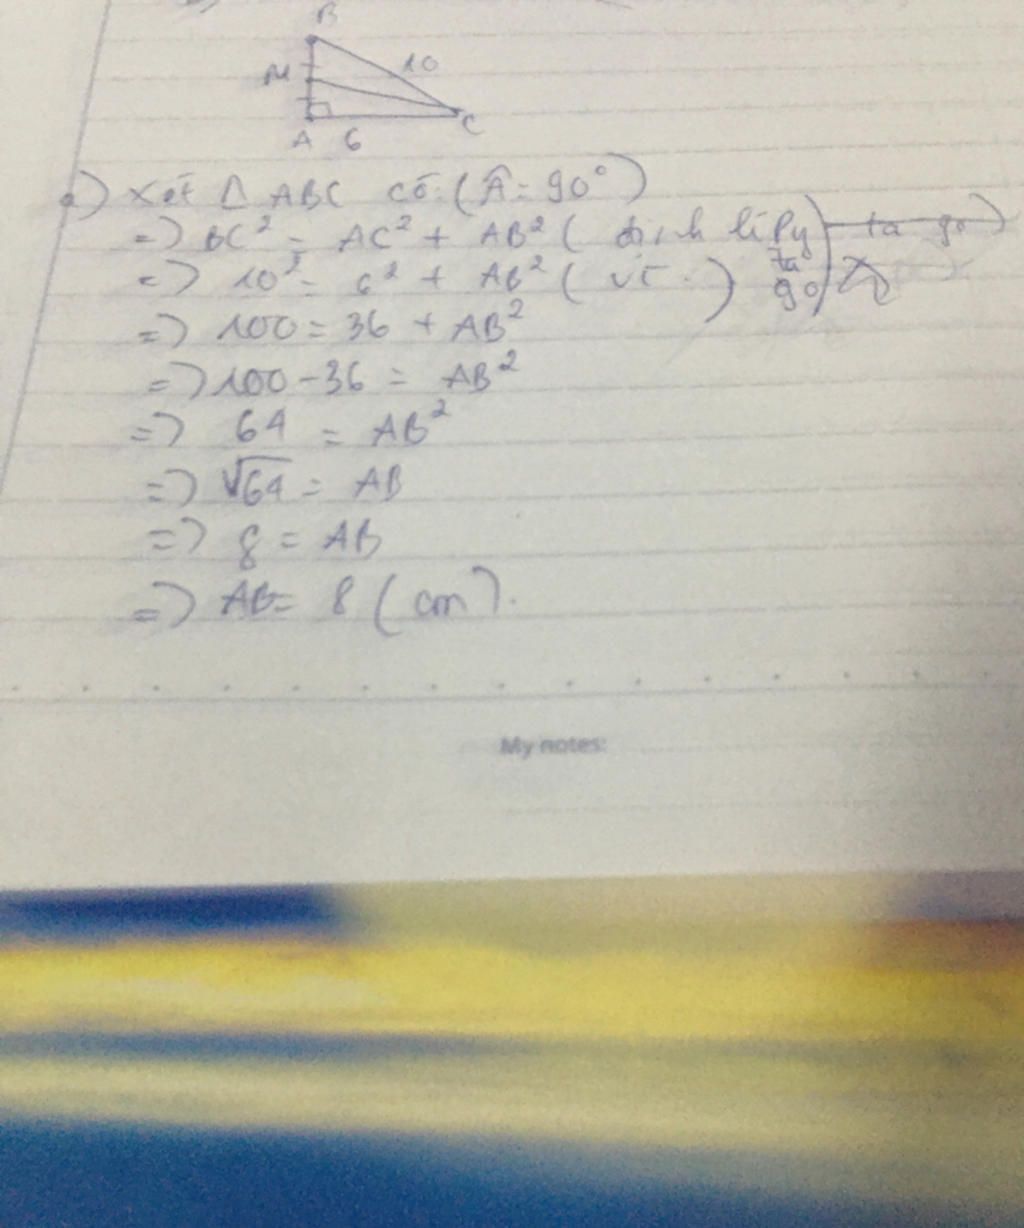 B
10
M
A 6 C
a) Xét Δ ABC có: (Â = 90°)
=> BC² = AC² + AB² ( định lí Py ta go)
=> 10² = 6² + AB² (
=> 100 = 36 + AB²
=> 100 - 36 = AB²
=> 64 = AB²
=> √64 = AB
=> 8 = AB
=> AB = 8 (cm).
My notes: